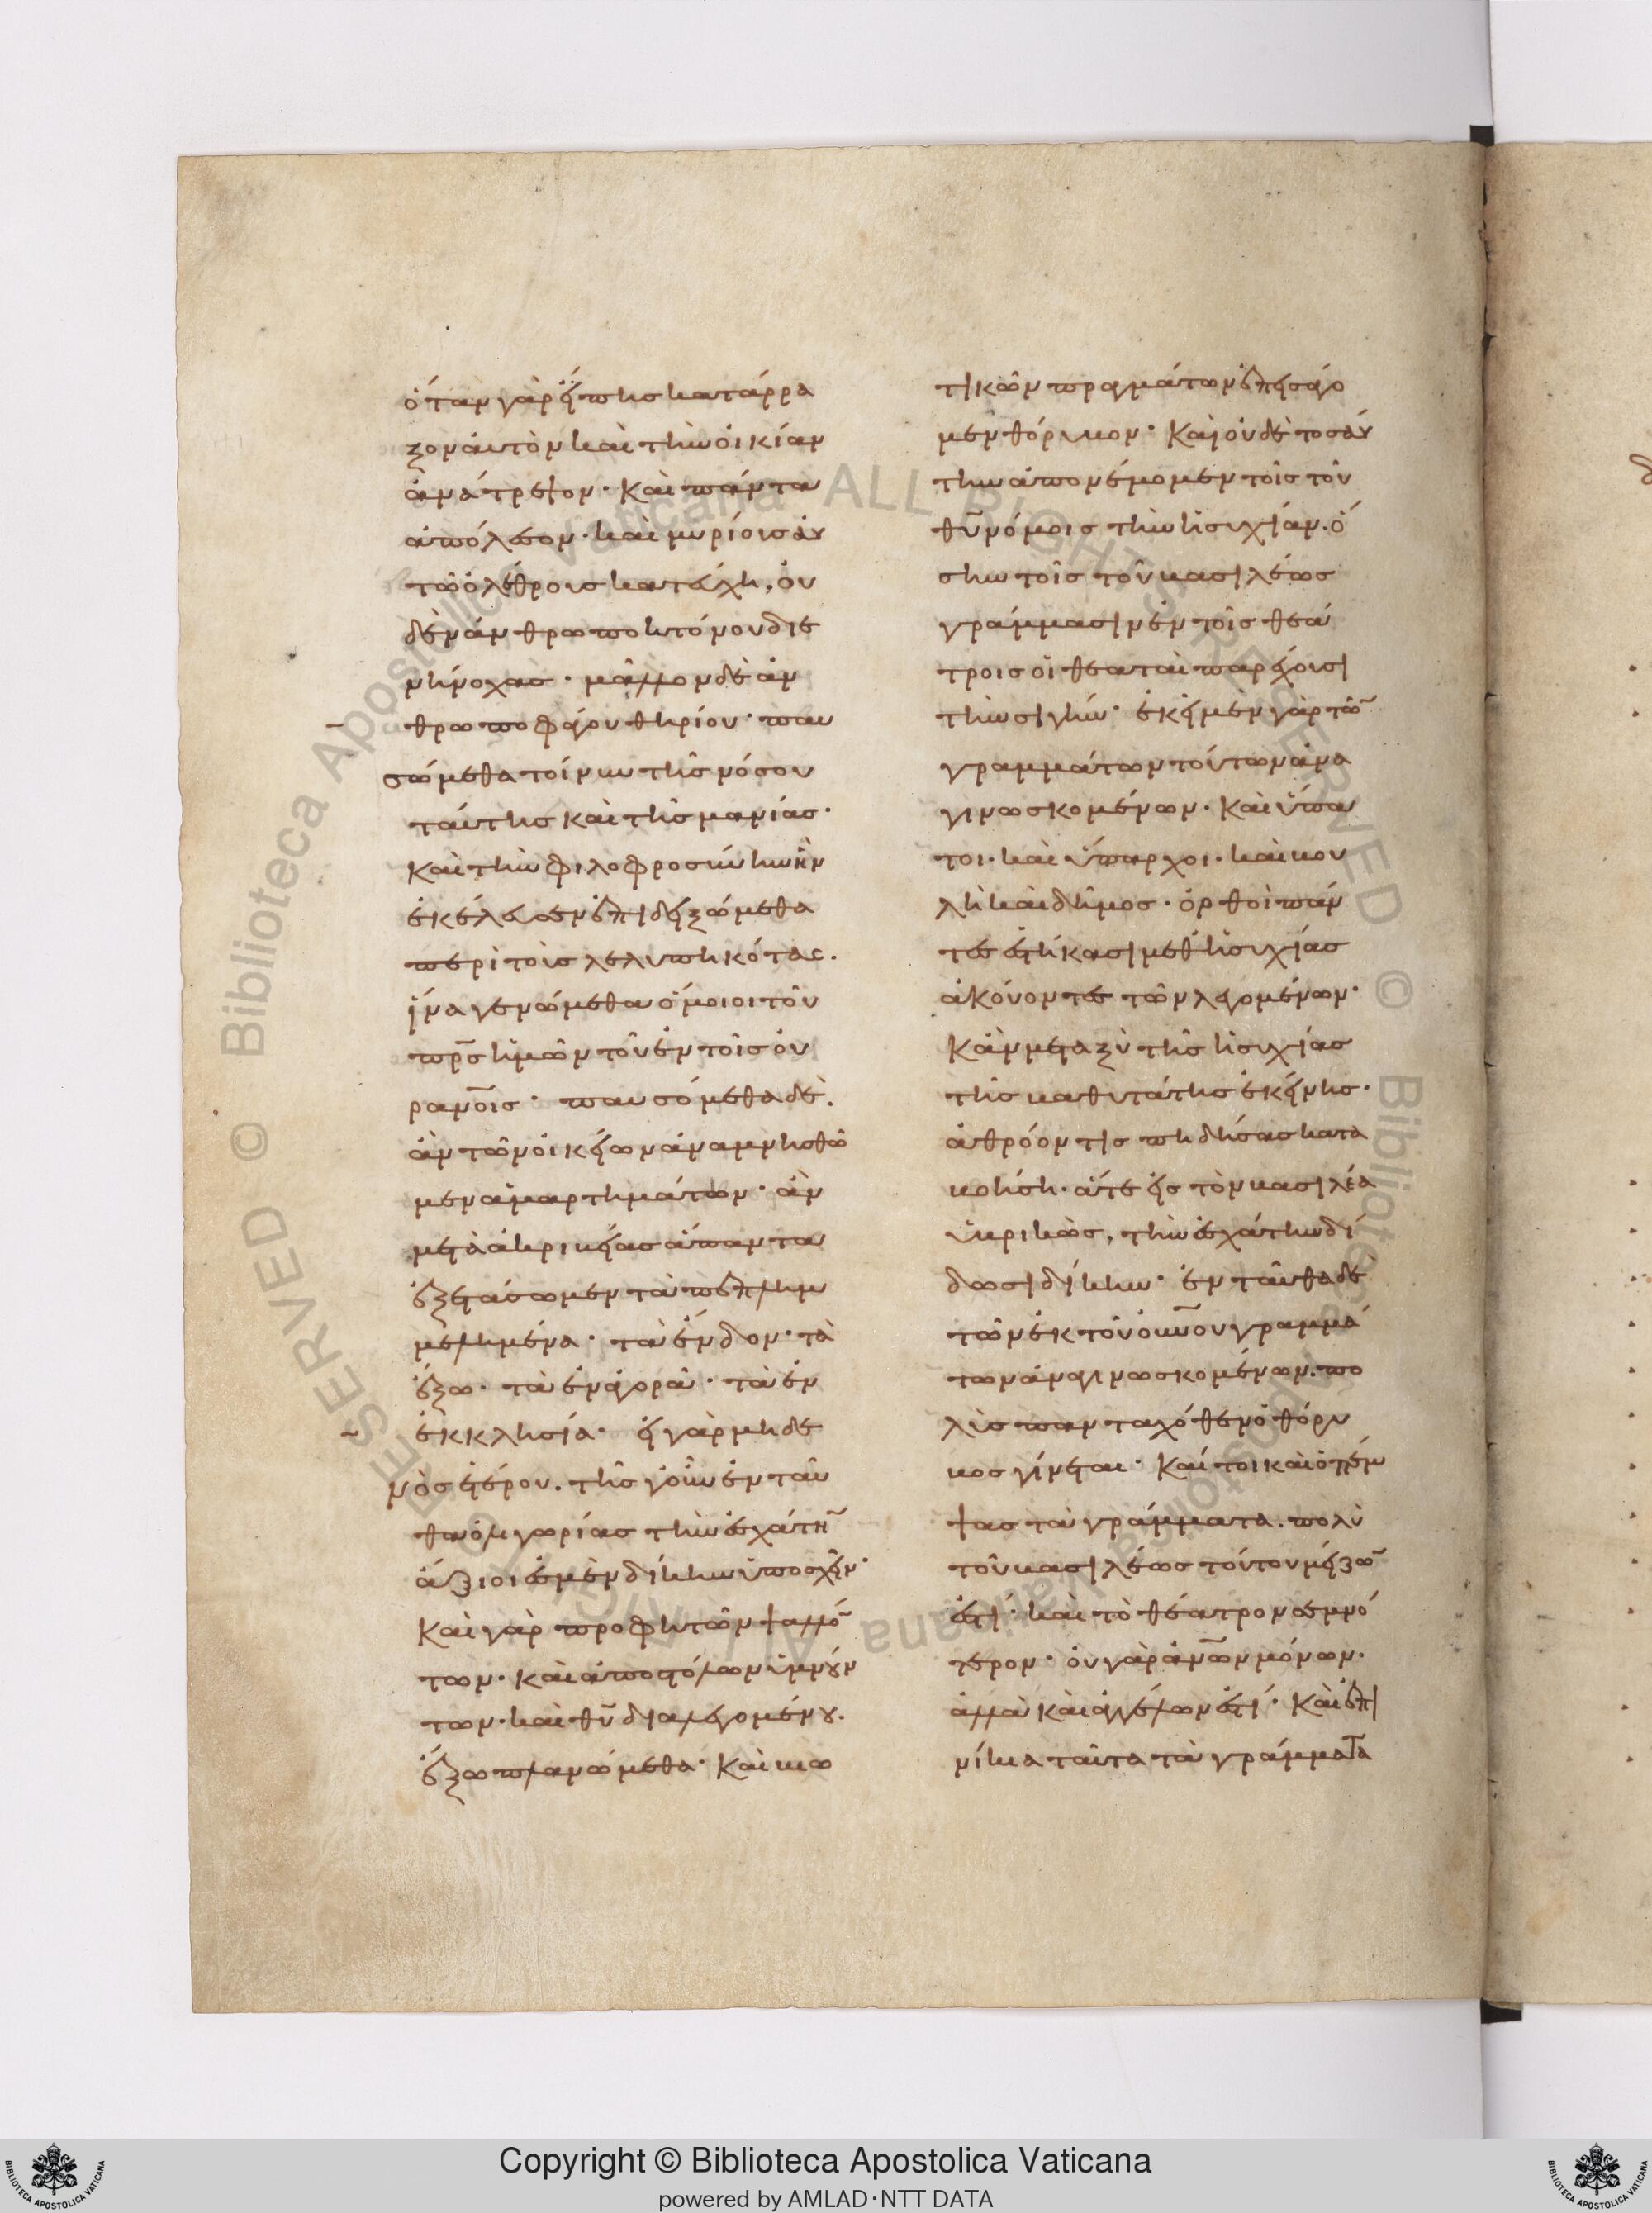 ὅταν γὰρ εἴπης κατάρρα
ξον αὐτὸν καὶ τὴν οἰκίαν
ἀνάτρεψον· Καὶ πάντα
ἀπόλεσον· καὶ μυρίοις αὐ
τῶ ὀλέθροις κατεύχη, οὐ
δὲν ἀνθρωποκτόνου διε
νήνοχας· μᾶλλον δὲ ἀν
θρωποφάγου θηρίου· παυ
σώμεθα τοίνυν τῆς νόσου
ταύτης καὶ τῆς μανίας·
Καὶ τὴν φιλοφροσύνην ἣν
ἐκέλευσεν ἐπιδειξώμεθα
περὶ τοὺς λελυπηκότας.
ἵνα γενώμεθα ὅμοιοι τοῦ
πρς ἡμῶν τοῦ ἐν τοῖς οὐ
ρανοῖς· παυσόμεθα δὲ.
ἂν τῶν οἰκείων ἀναμνησθῶ
μεν ἁμαρτημάτων· ἂν
μετὰ ἀκριβείας ἅπαντα
ἐξετάσωμεν τὰ πεπλημ
μελημένα· τὰ ἔνδον· τὰ
ἔξω· τὰ ἐν ἀγορᾶ· τὰ ἐν
ἐκκλησία· εἰ γὰρ μηδε
νὸς ἑτέρου. τῆς γοῦν ἐνταῦ
θα ὀλιγωρίας τὴν ἐσχάτη
ἄξιοι ἐσμὲν δίκην ὑποσχεῖν·
Καὶ γὰρ προφητῶν ψαλλό
των· καὶ ἀποστόλων ὑμνούν
των· καὶ θυ διαλεγομένου.
ἔξω πλανώμεθα· Καὶ βιω
τικῶν πραγμάτων ἐπεισάγο
μεν θόρυβον· Καὶ οὐδὲ τοσαύ
την ἀπονέμομεν τοῖς τοῦ
θυ νόμοις τὴν ἡσυχίαν. ὅ
σην τοῖς τοῦ βασιλέως
γράμμασιν ἐν τοῖς θεά
τροις οἱ θεαταὶ παρέχουσι
τὴν σιγήν· ἐκεῖ μὲν γὰρ τῶ
γραμμάτων τούτων ἀνα
γινωσκομένων· Καὶ ὕπα
τοι· καὶ ὕπαρχοι· καὶ βου
λὴ καὶ δῆμος· ὀρθοὶ πάν
τες ἑστήκασι μεθ ἡσυχίας
ἀκούοντες τῶν λεγομένων·
Κἂν μεταξὺ τῆς ἡσυχίας
τῆς βαθυτάτης ἐκείνης·
ἀθρόον τις πηδήσας κατα
βοήση· ἅτε εἰς τὸν βασιλέα
ὑβρικὼς, τὴν ἐσχάτην δί
δωσι δίκην· ἐνταῦθα δε
τῶν ἐκ τοῦ οὐνου γραμμά
των ἀναγινωσκομένων. πο
λὺς πανταχόθεν ὁ θόρυ
βος γίνεται· Καίτοι καὶ ὁ πέμ
ψας τὰ γράμματα. πολὺ
τοῦ βασιλέως τούτου μείζω
ἐστί· καὶ τὸ θέατρον σεμνό
τερον· οὐ γὰρ ἀνων μόνων.
ἀλλὰ καὶ ἀγγέλων ἐστί· Καὶ ἐπι
νίκια ταῦτα τὰ γράμματα
Copyright © Biblioteca Apostolica Vaticana
powered by AMLAD·NTT DATA